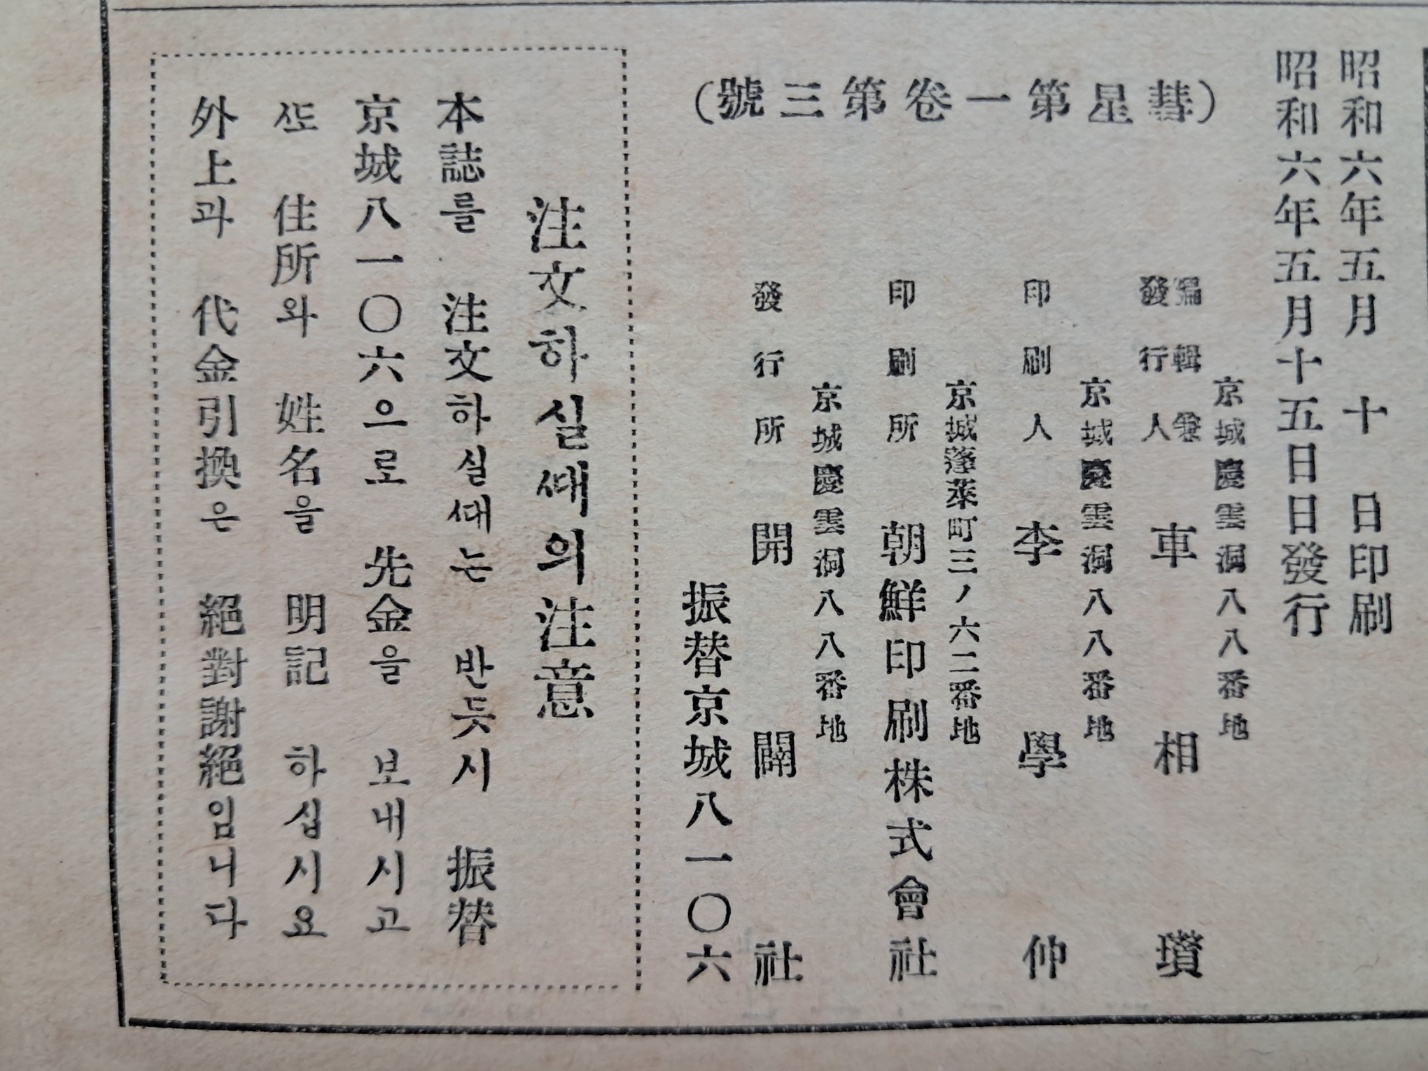 昭和六年五月 十 日印刷
昭和六年五月十五日日發行
(彗星第一卷第三號)
京城慶雲洞八八番地
編輯兼
發行人 車相瓚
京城慶雲洞八八番地
印刷人 李學仲
京城蓬萊町三ノ六二番地
印刷所 朝鮮印刷株式會社
京城慶雲洞八八番地
發行所 開闢社
振替京城八一〇六
注文하실ᄯᅢ의注意
本誌를 注文하실ᄯᅢ는 반듯시 振替
京城八一〇六으로 先金을 보내시고
ᄯᅩ 住所와 姓名을 明記 하십시요
外上과 代金引換은 絕對謝絕임니다